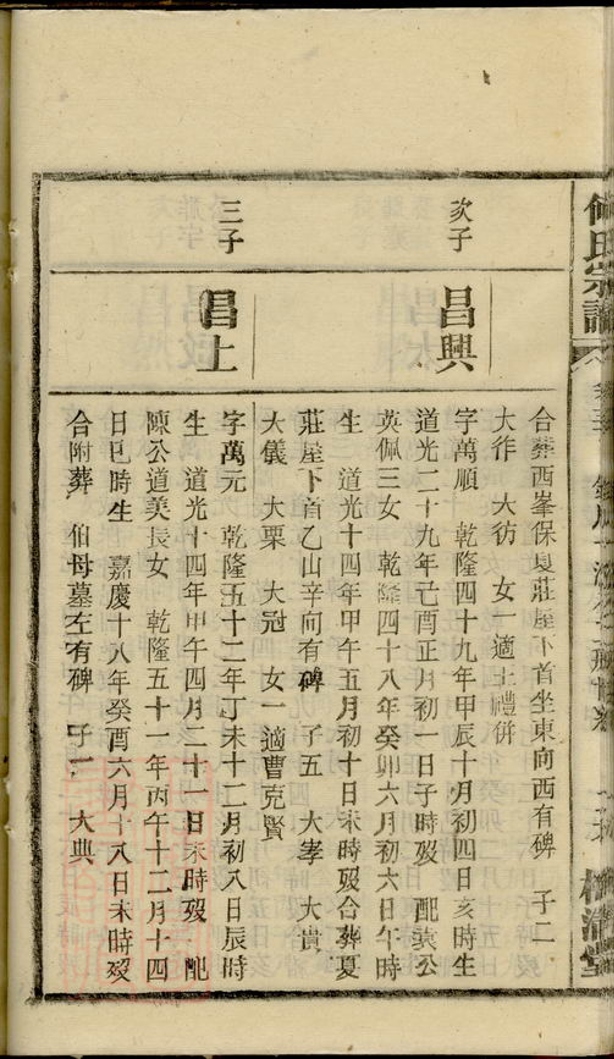 氏宗譜
合葬西峯保夏莊屋下首坐東向西有碑　子二
大作　大彷　女一適王禮併
次子
昌興
字萬順　乾隆四十九年甲辰十月初四日亥時生
道光二十九年己酉正月初一日子時歿　配葉公
英佩三女　乾隆四十八年癸卯六月初六日午時
生　道光十四年甲午五月初十日未時歿合葬夏
莊屋下首乙山辛向有碑　子五　大孝　大貴
大儀　大栗　大冠　女一適曹克賢
三子
昌上
字萬元　乾隆五十二年丁未十二月初八日辰時
生　道光十四年甲午四月二十一日未時歿　配
陳公道美長女　乾隆五十一年丙午十二月十四
日巳時生　嘉慶十八年癸酉六月十八日未時歿
合附葬　伯母墓左有碑　子一　大典